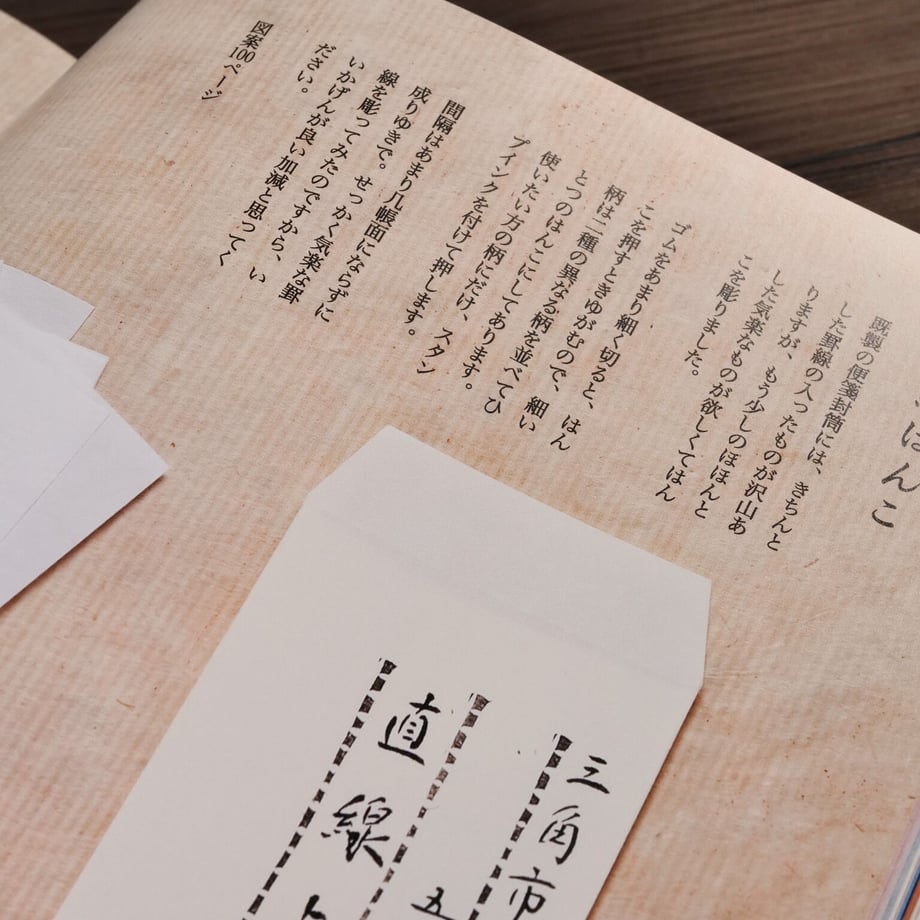 はんこ
既製の便箋封筒には、きちんと
した罫線の入ったものが沢山あ
りますが、もう少しのほほんと
した気楽なものが欲しくてはん
こを彫りました。
ゴムをあまり細く切ると、はん
こを押すときゆがむので、細い
柄は二種の異なる柄を並べてひ
とつのはんこにしてあります。
使いたい方の柄にだけ、スタン
プインクを付けて押します。
間隔はあまり几帳面にならずに
成りゆきで。せっかく気楽な罫
線を彫ってみたのですから、い
いかげんが良い加減と思ってく
ださい。
図案100ページ
三角市
五
直線